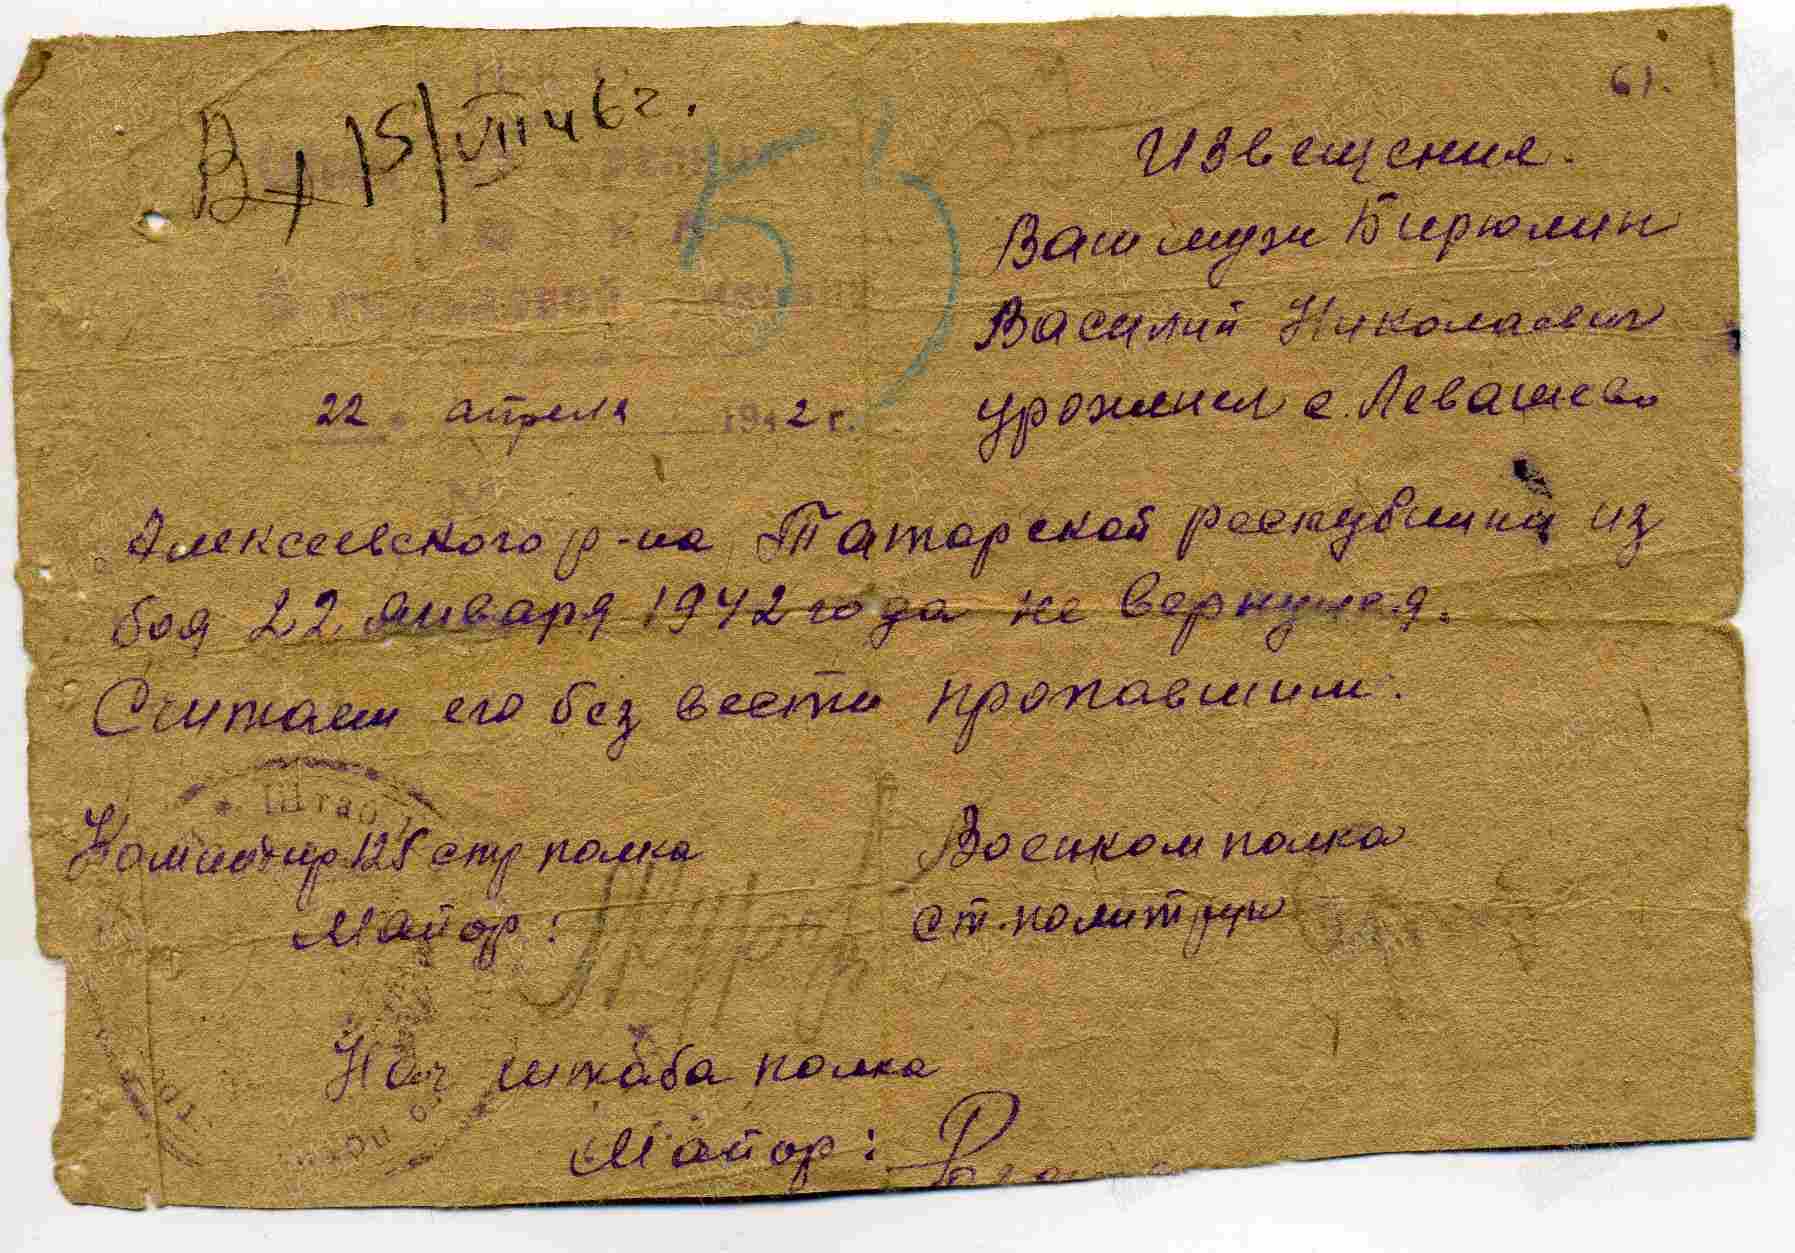 61.
Вх 15/VII 46 г.
55
22 апреля 1942 г.
Извещения.
Ваш муж Бирюлин
Василий Николаевич
уроженец с. Левашево
Алексеевского р-на Татарской республики из
боя 22 января 1942 года не вернулся.
Считаем его без вести пропавшим.
Штаб
Командир 125 стр полка
Майор:
Военком полка
ст. политрук
Нач штаба полка
Майор: